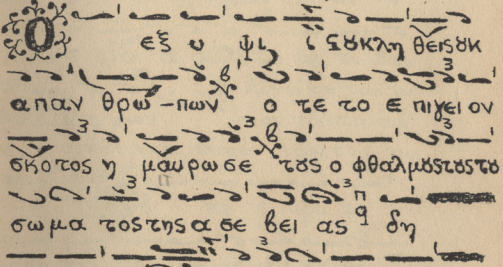 Ο εξ υ ψι ι ϛουκλη θεις ουκ
απαν θρω – πων ο τε το ε πιγειον
σκοτος η μαυρωσε τους ο φθαλμους του
σωμα τος της α σε βει ας δη